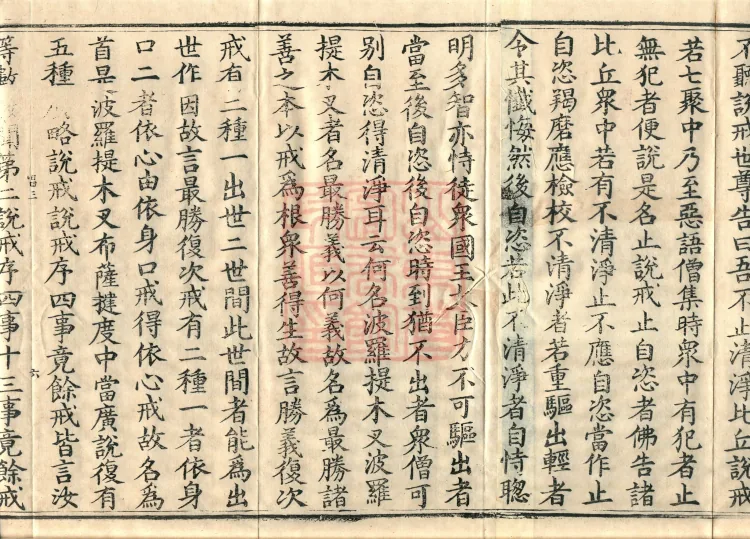 不聽說戒世尊告曰吾不止清淨比丘說戒
若七聚中乃至惡語僧集時眾中有犯者止
無犯者便說是名止說戒止自恣者佛告諸
比丘眾中若有不清淨止不應自恣當作止
自恣羯磨應檢校不清淨者若重驅出輕者
令其懺悔然後自恣若此不清淨者自恃聰
明多智亦恃徒眾國王大臣力不可驅出者
當至後自恣後自恣時到猶不出者眾僧可
別自恣得清淨耳云何名波羅提木叉波羅
提木叉者名最勝義以何義故名為最勝諸
善之本以戒為根眾善得生故言勝義復次
戒有二種一出世二世間此世間者能為出
世作因故言最勝復次戒有二種一者依身
口二者依心由依身口戒得依心戒故名為
首是波羅提木叉布薩揵度中當廣說復有
五種 略說戒說戒序四事竟餘戒皆言汝
等數 聞第二說戒序四事十三事竟餘戒
六